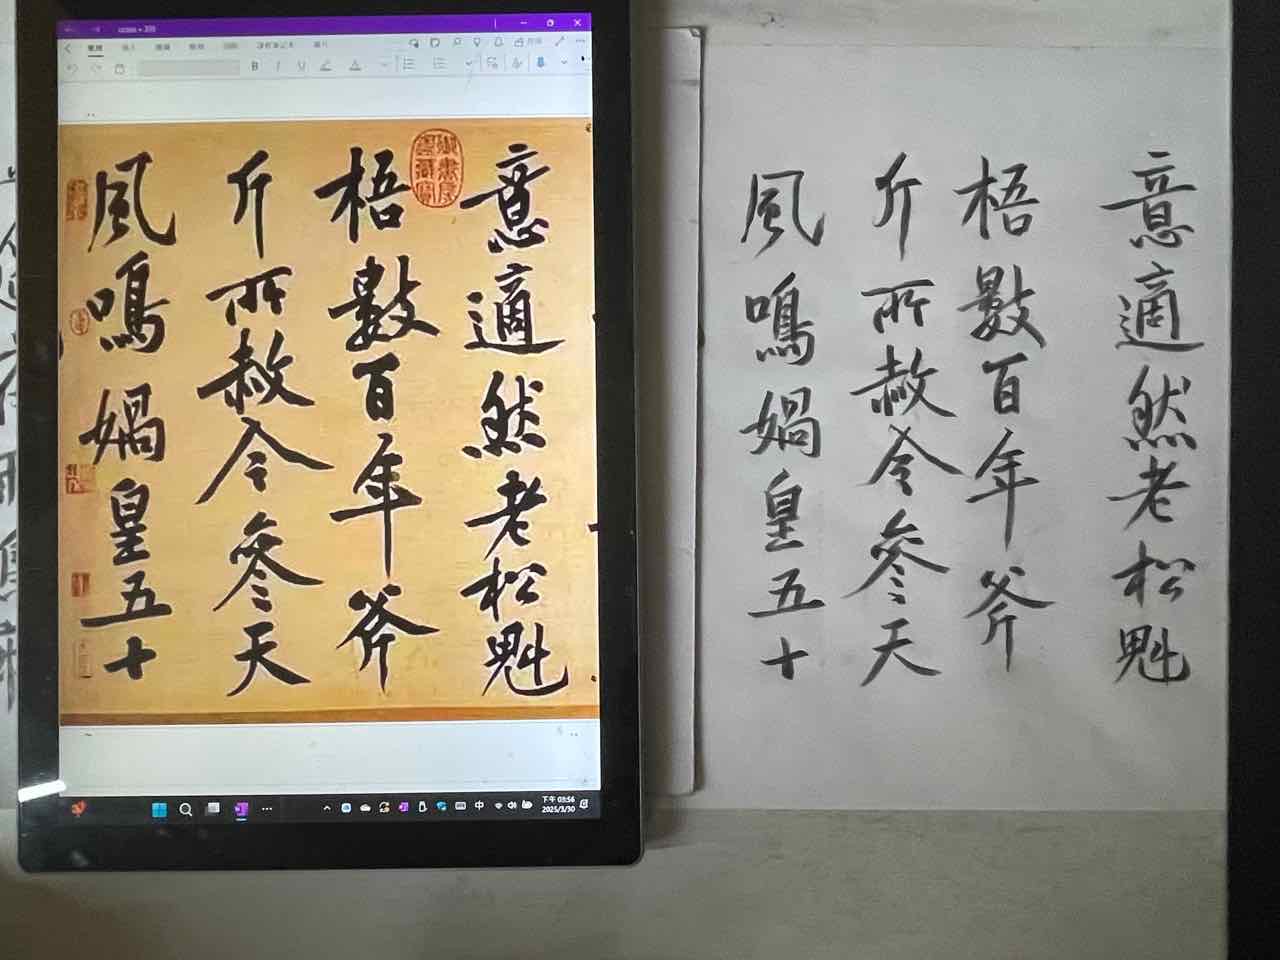 意適然老松魁
梧數百年斧
斤所赦令參天
風鳴媧皇五十
意適然老松魁
梧數百年斧
斤所赦令參天
風鳴媧皇五十
B I U
中
下午 03:56
2025/3/30